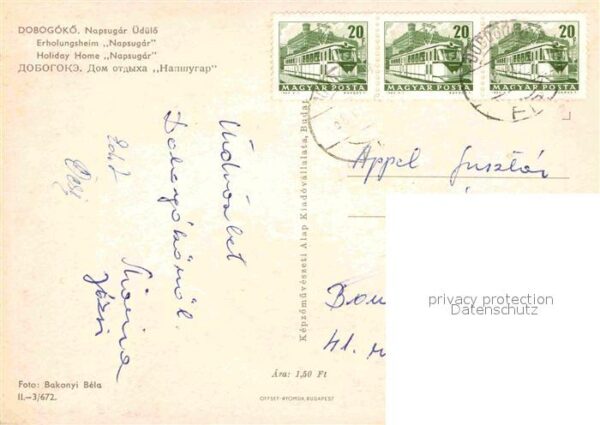 DOBOGÓKŐ. Napsugár Üdülő
Erholungsheim „Napsugár"
Holiday Home „Napsugár"
ДОБОГОКЭ. Дом отдыха „Напшугар"
20
MAGYAR POSTA
20
MAGYAR POSTA
20
MAGYAR POSTA
Üdvözlet
Dobogókőről.
Mária
Józsi
Képzőművészeti Alap Kiadóvállalata, Budapest
Appel Gusztáv
41.
privacy protection
Datenschutz
Ára: 1,50 Ft
Foto: Bakonyi Béla
II.—3/672.
OFFSET-NYOMDA, BUDAPEST